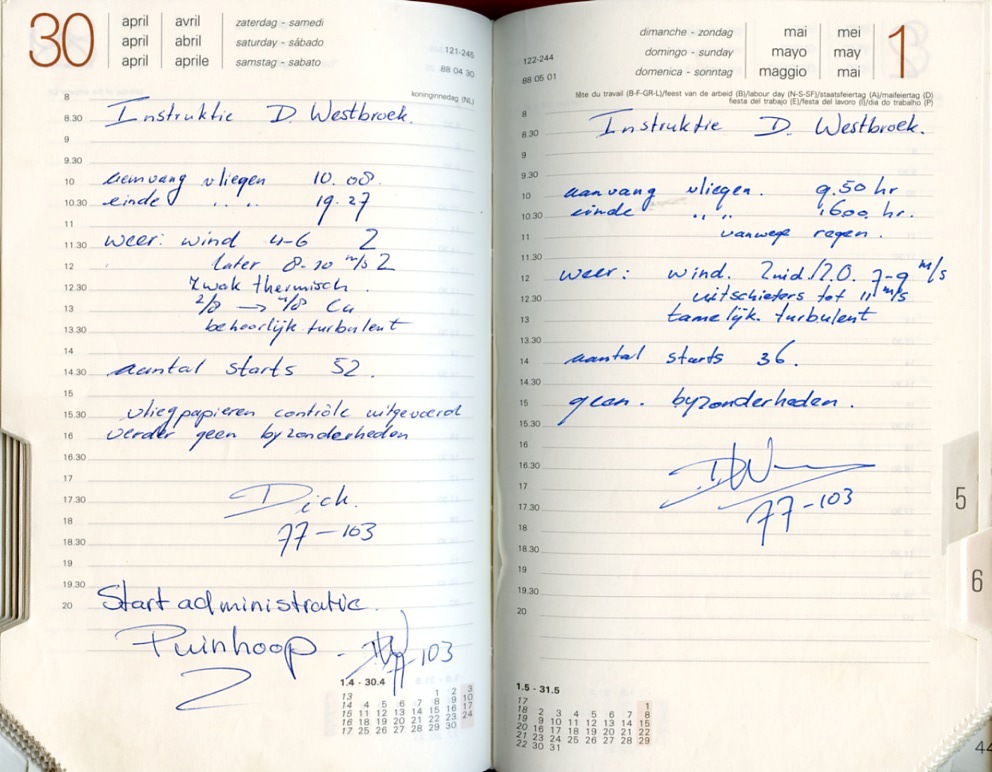 30
april avril zaterdag - samedi
april abril saturday - sábado
april aprile samstag - sabato
121-245
88 04 30
koninginnedag (NL)
8
8.30 Instruktie D. Westbroek.
9
9.30
10 aanvang vliegen 10.08.
10.30 einde " " 19.27
11
11.30 weer: wind 4-6 Z
12 later 8-10 m/s Z
12.30 Zwak thermisch.
13 2/8 → 4/8 Cu
13.30 behoorlijk turbulent
14
14.30 aantal starts 52.
15
15.30 vliegpapieren contrôle uitgevoerd
16 verder geen byzonderheden
16.30
17
17.30 Dick.
18 77-103
18.30
19
19.30
20 Start administratie.
Puinhoop - 77-103
1.4 - 30.4
13 1 2 3
14 4 5 6 7 8 9 10
15 11 12 13 14 15 16 17
16 18 19 20 21 22 23 24
17 25 26 27 28 29 30
dimanche - zondag mai mei
domingo - sunday mayo may
domenica - sonntag maggio mai
1
122-244
88 05 01
fête du travail (B-F-GR-L)/feest van de arbeid (B)/labour day (N-S-SF)/staatsfeiertag (A)/maifeiertag (D)
fiesta del trabajo (E)/festa del lavoro (I)/dia do trabalho (P)
8
8.30 Instruktie D. Westbroek.
9
9.30
10 aanvang vliegen. 9.50 hr
10.30 einde " " 1600 hr.
11 vanwege regen.
11.30
12 weer: wind. Zuid/Z.O. 7-9 m/s
12.30 uitschieters tot 11 m/s
13 tamelijk turbulent
13.30
14 aantal starts 36.
14.30
15 geen. byzonderheden.
15.30
16
16.30
17
17.30 77-103
18
18.30
19
19.30
20
1.5 - 31.5
17 1
18 2 3 4 5 6 7 8
19 9 10 11 12 13 14 15
20 16 17 18 19 20 21 22
21 23 24 25 26 27 28 29
22 30 31
5
6
44